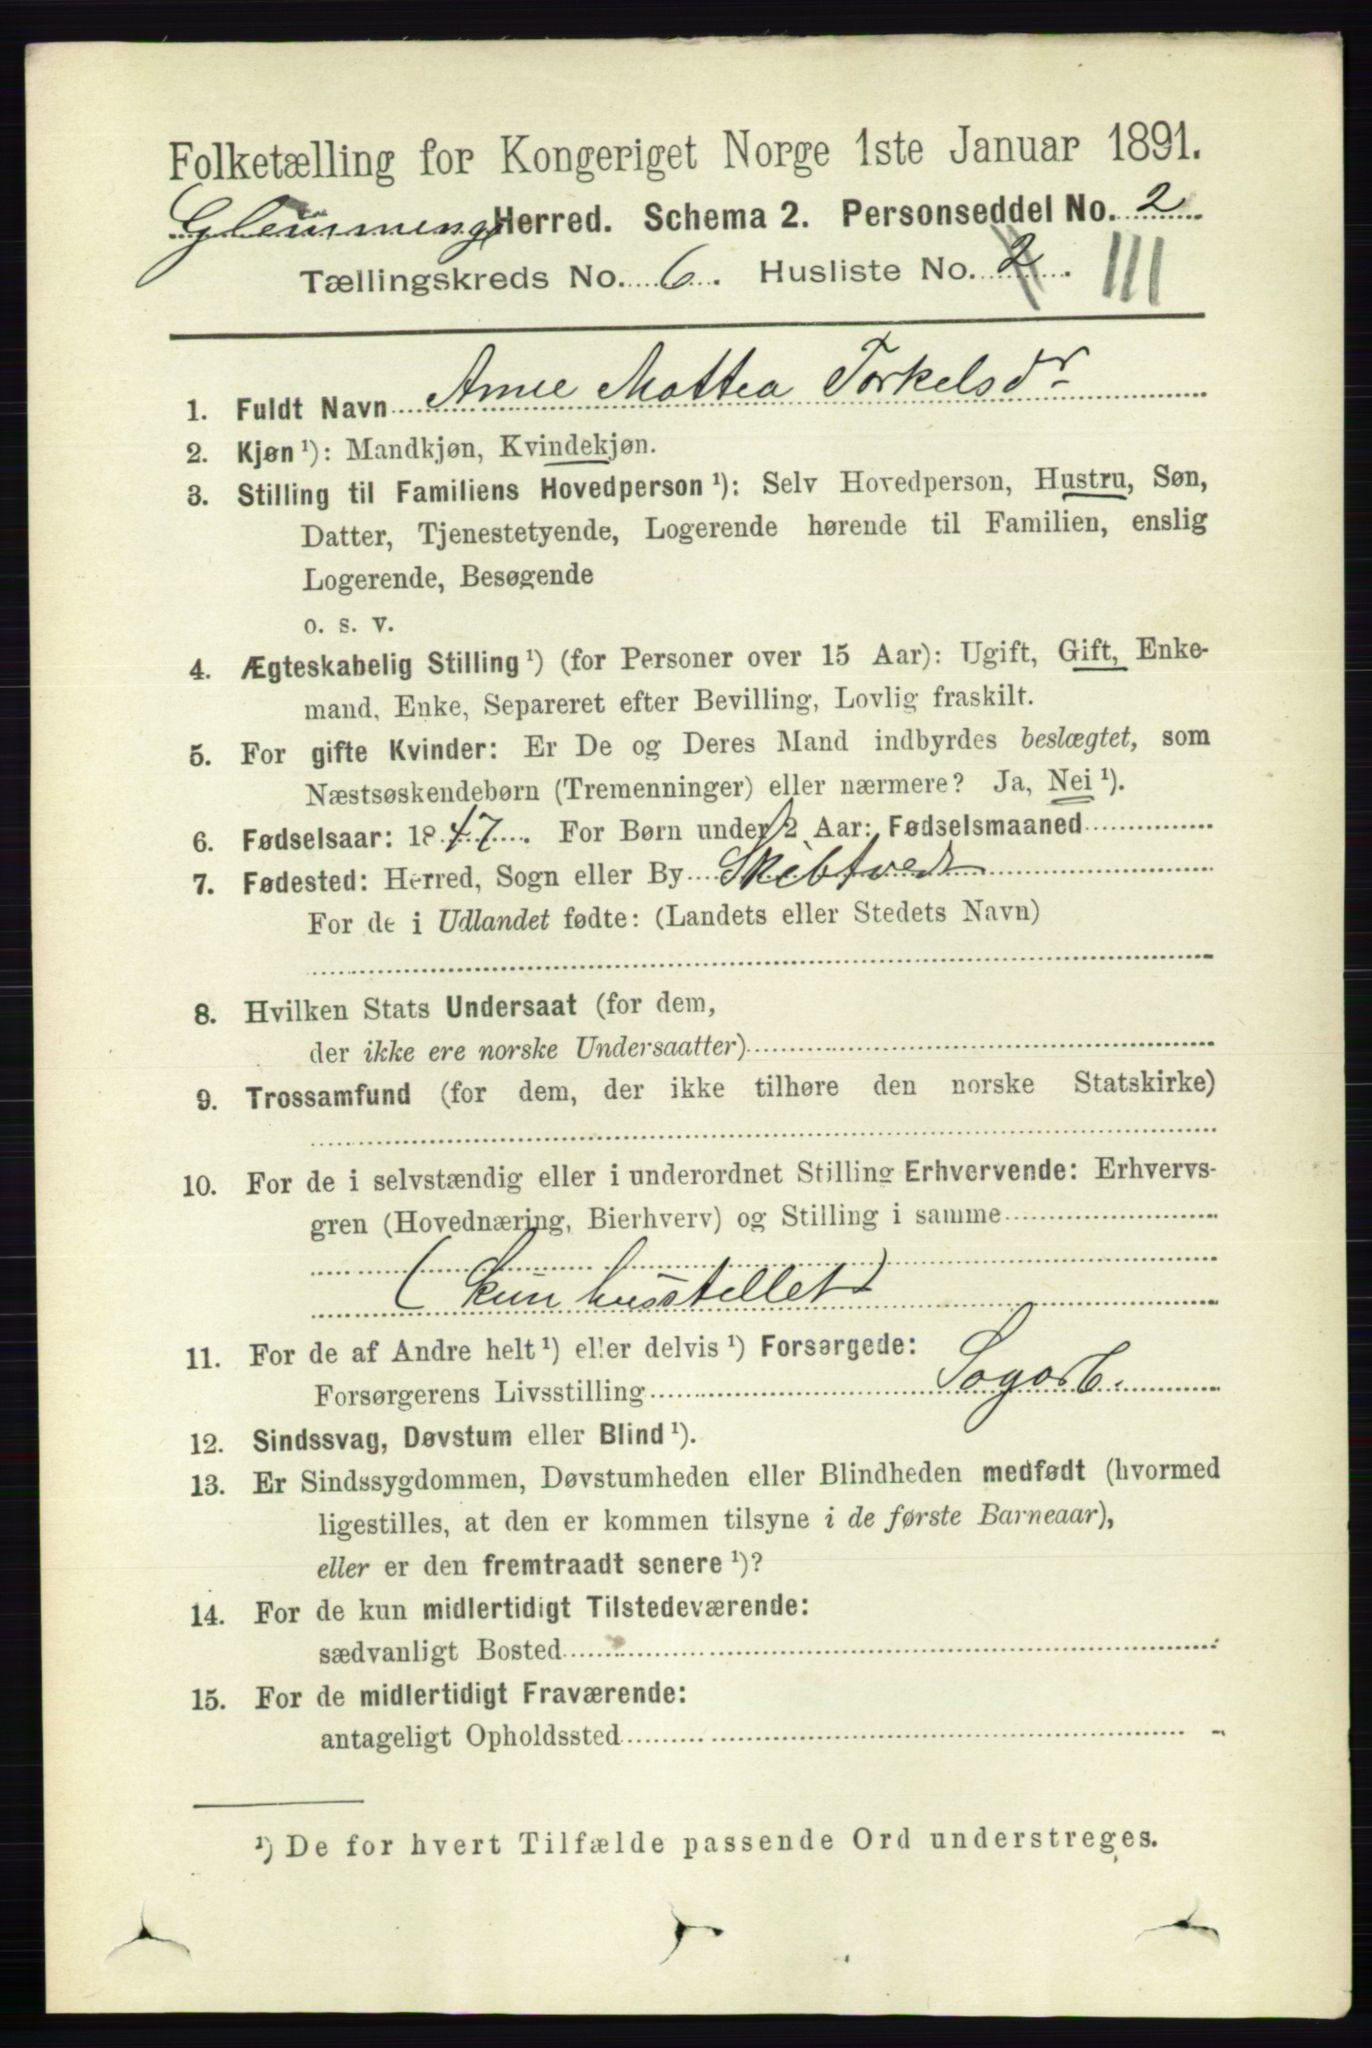 Folketælling for Kongeriget Norge 1ste Januar 1891.
Glemminge Herred. Schema 2. Personseddel No. 2
Tællingskreds No. 6. Husliste No. 2. 111
1. Fuldt Navn Anne Mattea Torkelsdr
2. Kjøn ¹): Mandkjøn, Kvindekjøn.
3. Stilling til Familiens Hovedperson ¹): Selv Hovedperson, Hustru, Søn,
Datter, Tjenestetyende, Logerende hørende til Familien, enslig
Logerende, Besøgende
o. s. v.
4. Ægteskabelig Stilling ¹) (for Personer over 15 Aar): Ugift, Gift, Enke-
mand, Enke, Separeret efter Bevilling, Lovlig fraskilt.
5. For gifte Kvinder: Er De og Deres Mand indbyrdes beslægtet, som
Næstsøskendebørn (Tremenninger) eller nærmere? Ja, Nei ¹).
6. Fødselsaar: 1847. For Børn under 2 Aar: Fødselsmaaned
7. Fødested: Herred, Sogn eller By Skibtvedt
For de i Udlandet fødte: (Landets eller Stedets Navn)
8. Hvilken Stats Undersaat (for dem,
der ikke ere norske Undersaatter)
9. Trossamfund (for dem, der ikke tilhøre den norske Statskirke)
10. For de i selvstændig eller i underordnet Stilling Erhvervende: Erhvervs-
gren (Hovednæring, Bierhverv) og Stilling i samme
(kun husstellet)
11. For de af Andre helt ¹) eller delvis ¹) Forsørgede:
Forsørgerens Livsstilling Sagarb.
12. Sindssvag, Døvstum eller Blind ¹).
13. Er Sindssygdommen, Døvstumheden eller Blindheden medfødt (hvormed
ligestilles, at den er kommen tilsyne i de første Barneaar),
eller er den fremtraadt senere ¹)?
14. For de kun midlertidigt Tilstedeværende:
sædvanligt Bosted
15. For de midlertidigt Fraværende:
antageligt Opholdssted
¹) De for hvert Tilfælde passende Ord understreges.